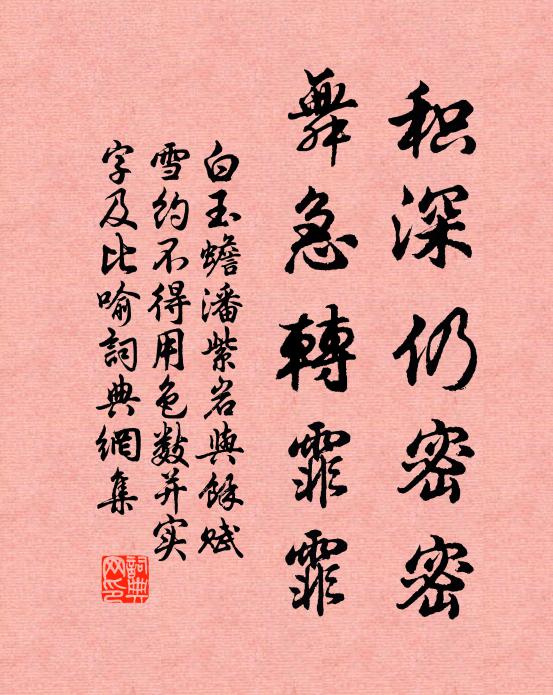 积深仍密密
舞急轉霏霏
白玉蟾潘紫岩與餘賦
雪約不得用色数并实
字及比喻詞典網集
詞典
网印